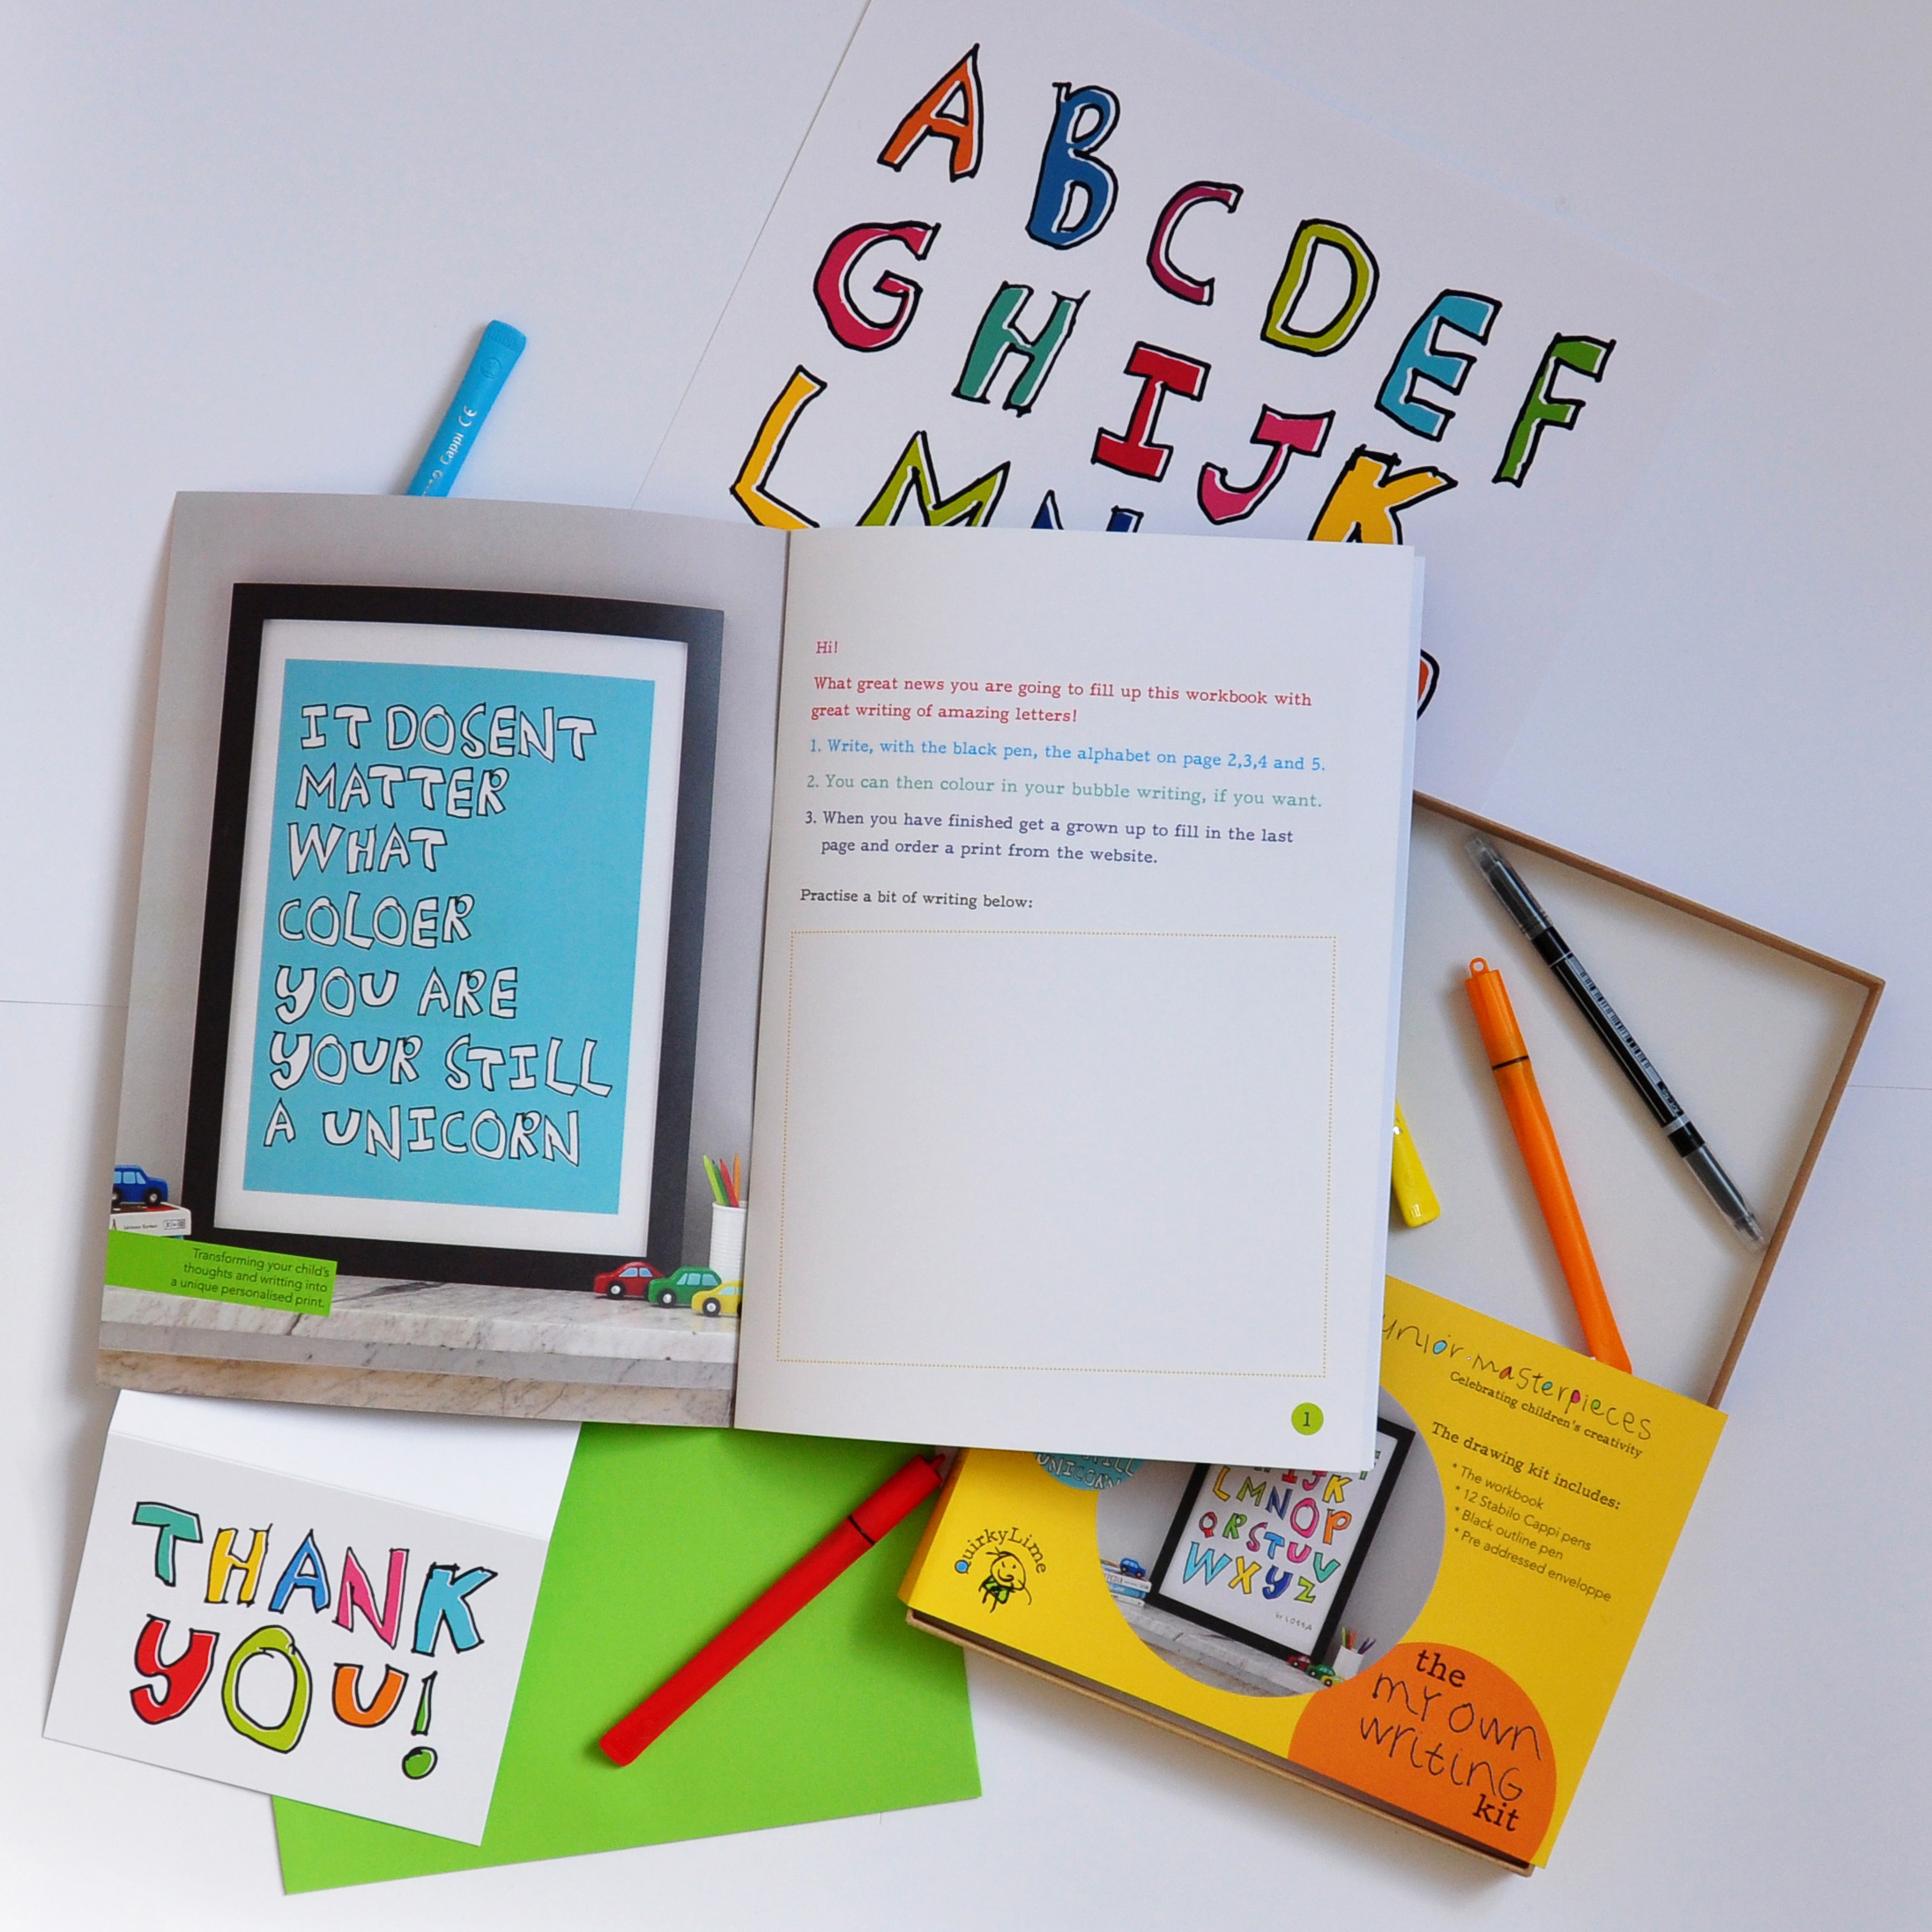 A B C D E F
G H I J K
L M N
Cappi CE
IT DOSENT
MATTER
WHAT
COLOER
YOU ARE
YOUR STILL
A UNICORN
Transforming your child's
thoughts and writting into
a unique personalised print.
Hi!
What great news you are going to fill up this workbook with
great writing of amazing letters!
1. Write, with the black pen, the alphabet on page 2,3,4 and 5.
2. You can then colour in your bubble writing, if you want.
3. When you have finished get a grown up to fill in the last
page and order a print from the website.
Practise a bit of writing below:
1
THANK
YOU!
unior masterpieces
Celebrating children's creativity
The drawing kit includes:
* The workbook
* 12 Stabilo Cappi pens
* Black outline pen
* Pre addressed enveloppe
STILL
UNICORN
QuirkyLime
IJK
LMNOP
QRSTUV
WXYZ
by LOTTA
the
my own
writing
kit